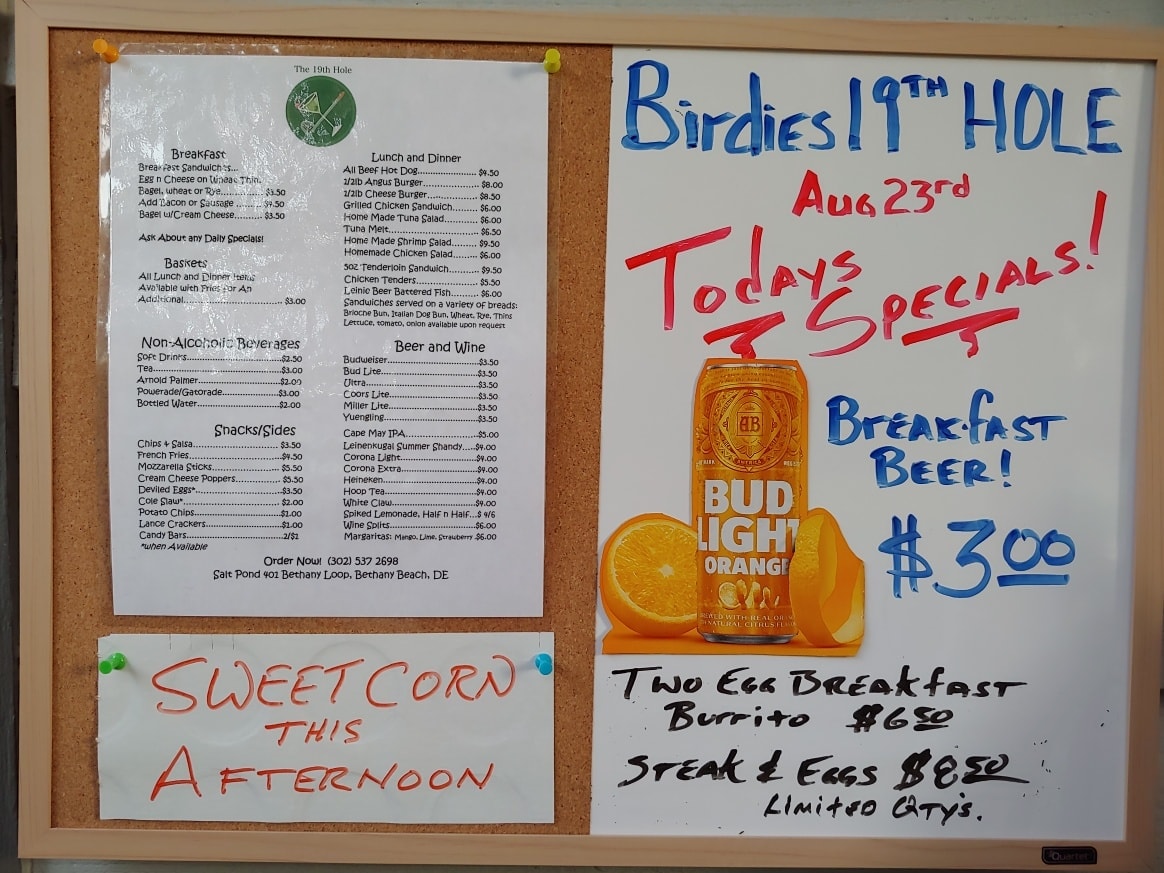 The 19th Hole
Breakfast
Breakfast Sandwiches...
Egg n Cheese on Wheat Thin,
Bagel, wheat or Rye............$3.50
Add Bacon or Sausage ........$4.50
Bagel w/Cream Cheese........$3.50
Ask About any Daily Specials!
Baskets
All Lunch and Dinner Items
Available with Fries for An
Additional............................$3.00
Non-Alcoholic Beverages
Soft Drinks............................$2.50
Tea........................................$3.00
Arnold Palmer......................$2.00
Powerade/Gatorade..............$3.00
Bottled Water........................$2.00
Snacks/Sides
Chips & Salsa........................$3.50
French Fries..........................$4.50
Mozzarella Sticks..................$5.50
Cream Cheese Poppers........$5.50
Deviled Eggs*........................$3.50
Cole Slaw*............................$2.00
Potato Chips..........................$1.00
Lance Crackers......................$1.00
Candy Bars............................2/$1
*when Available
Lunch and Dinner
All Beef Hot Dog........................ $4.50
1/2lb Angus Burger......................$8.00
1/2lb Cheese Burger....................$8.50
Grilled Chicken Sandwich........ $6.00
Home Made Tuna Salad............ $6.00
Tuna Melt.................................. $6.50
Home Made Shrimp Salad........$9.50
Homemade Chicken Salad........ $6.00
5oz Tenderloin Sandwich..........$9.50
Chicken Tenders........................$5.50
Leinie Beer Battered Fish........ $6.00
Sandwiches served on a Variety of breads:
Brioche Bun, Italian Dog Bun, Wheat, Rye, Thins
Lettuce, tomato, onion available upon request
Beer and Wine
Budweiser..................................$3.50
Bud Lite......................................$3.50
Ultra..........................................$3.50
Coors Lite..................................$3.50
Miller Lite..................................$3.50
Yuengling....................................$3.50
Cape May IPA............................$5.00
Leinenkugal Summer Shandy....$4.00
Corona Light..............................$4.00
Corona Extra..............................$4.00
Heineken....................................$4.00
Hoop Tea....................................$4.00
White Claw................................$4.00
Spiked Lemonade, Half n Half...$ 4/6
Wine Splits................................$6.00
Margaritas: Mango, Lime, Strawberry $6.00
Order Now! (302) 537 2698
Salt Pond 401 Bethany Loop, Bethany Beach, DE
SWEET CORN
THIS
AFTERNOON
Birdies 19TH HOLE
Aug 23rd
Todays
Specials!
AB
BUD
LIGHT
ORANGE
BREAKFAST
BEER!
$3.00
TWO EGG BREAKFAST
Burrito $6.50
STEAK & EGGS $8.50
LIMITED QTY'S.
Quartet